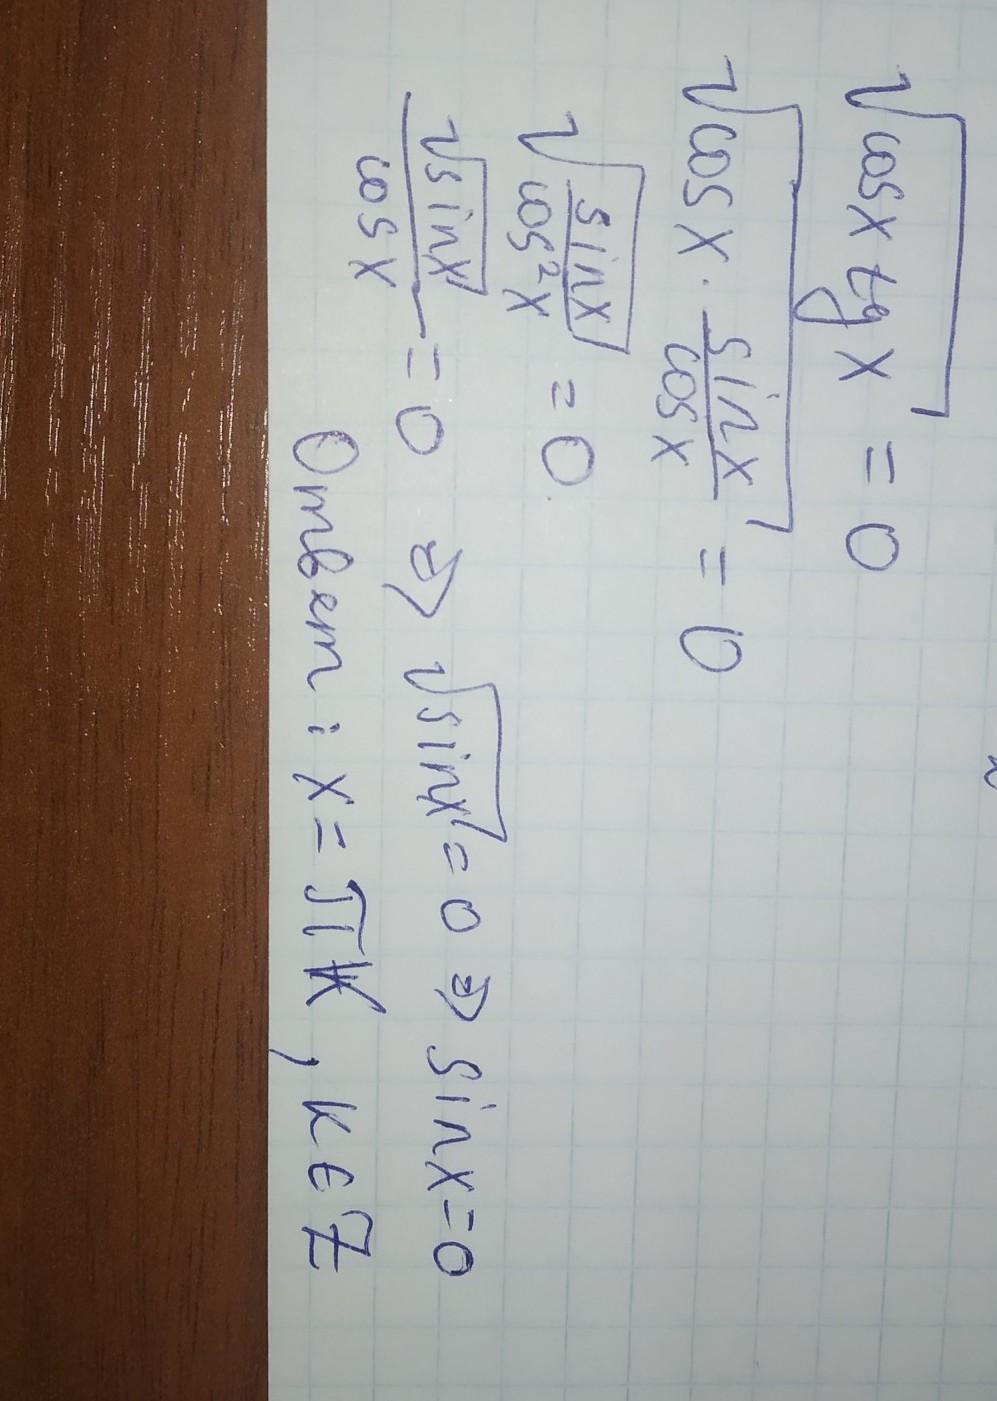 √(cosx tgx) = 0
√(cosx · sinx/cosx) = 0
√(sinx/cos²x) = 0.
√sinx/cosx = 0 ⇒ √sinx = 0 ⇒ sinx = 0
Ответ: x = πk, k ∈ Z